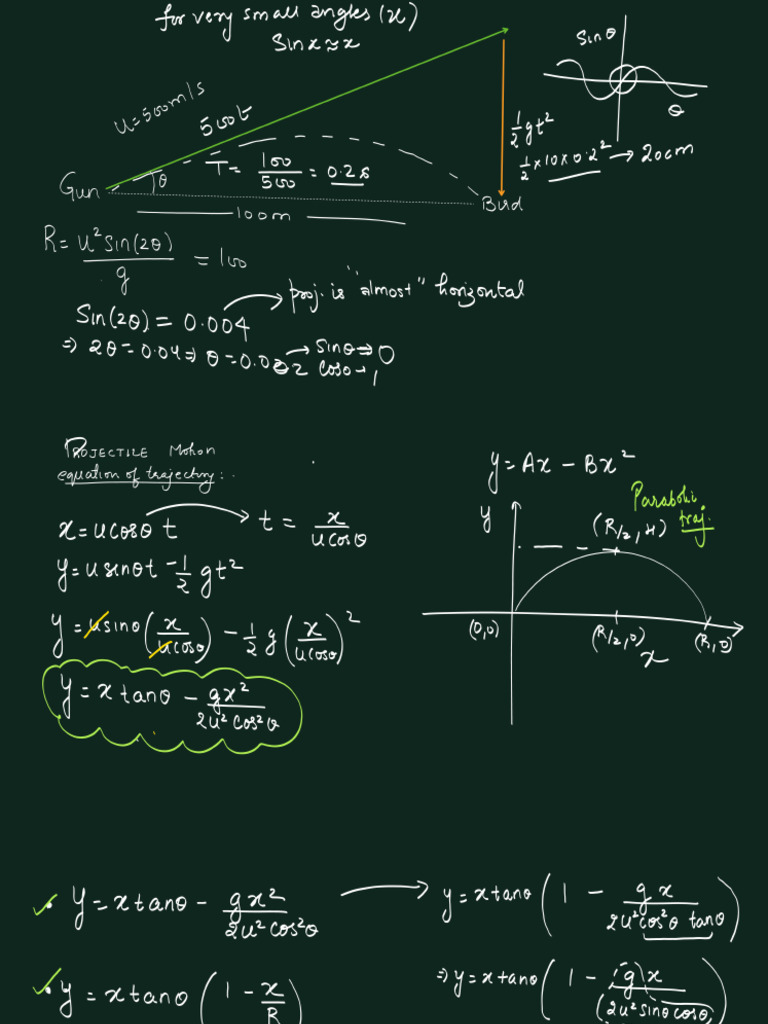 for very small angles (x)
Sin x ≈ x
Sinθ
θ
u = 500 m/s
500t
½gt²
½×10×0.2² → 20cm
T = 100/500 = 0.2s
Gun
θ
Bird
100m
R = u² Sin(2θ)/g = 100
proj. is "almost" horizontal
Sin(2θ) = 0.004
⇒ 2θ = 0.04 ⇒ θ = 0.002 → Sinθ ⇒ 0
cosθ → 1
PROJECTILE Motion
equation of trajectory:.
y = Ax − Bx²
Parabolic
traj.
y
(R/2, H)
(0,0)
(R/2, 0)
(R, 0)
x
x = ucosθ t → t = x/(ucosθ)
y = usinθt − ½gt²
y = usinθ(x/(ucosθ)) − ½g(x/(ucosθ))²
y = x tanθ − gx²/(2u²cos²θ)
y = x tanθ − gx²/(2u²cos²θ) → y = x tanθ(1 − gx/(2u²cos²θ tanθ))
y = x tanθ(1 − x/R)
⇒ y = x tanθ(1 − (g)x/(2u²sinθcosθ))